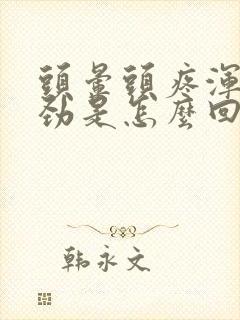 頭暈頭疼渾
勁是怎麼回
韩永文